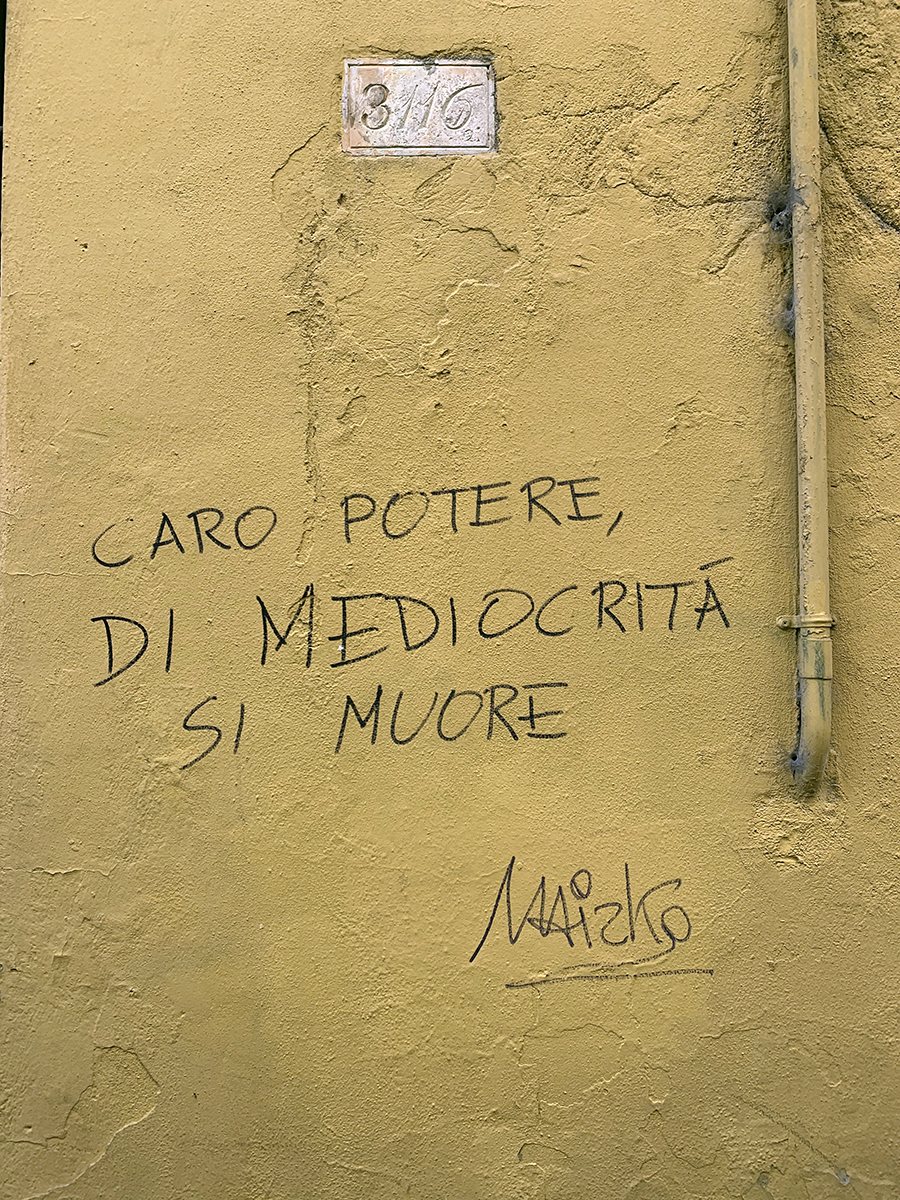 3116
CARO POTERE,
DI MEDIOCRITÁ
SI MUORE
Maizko